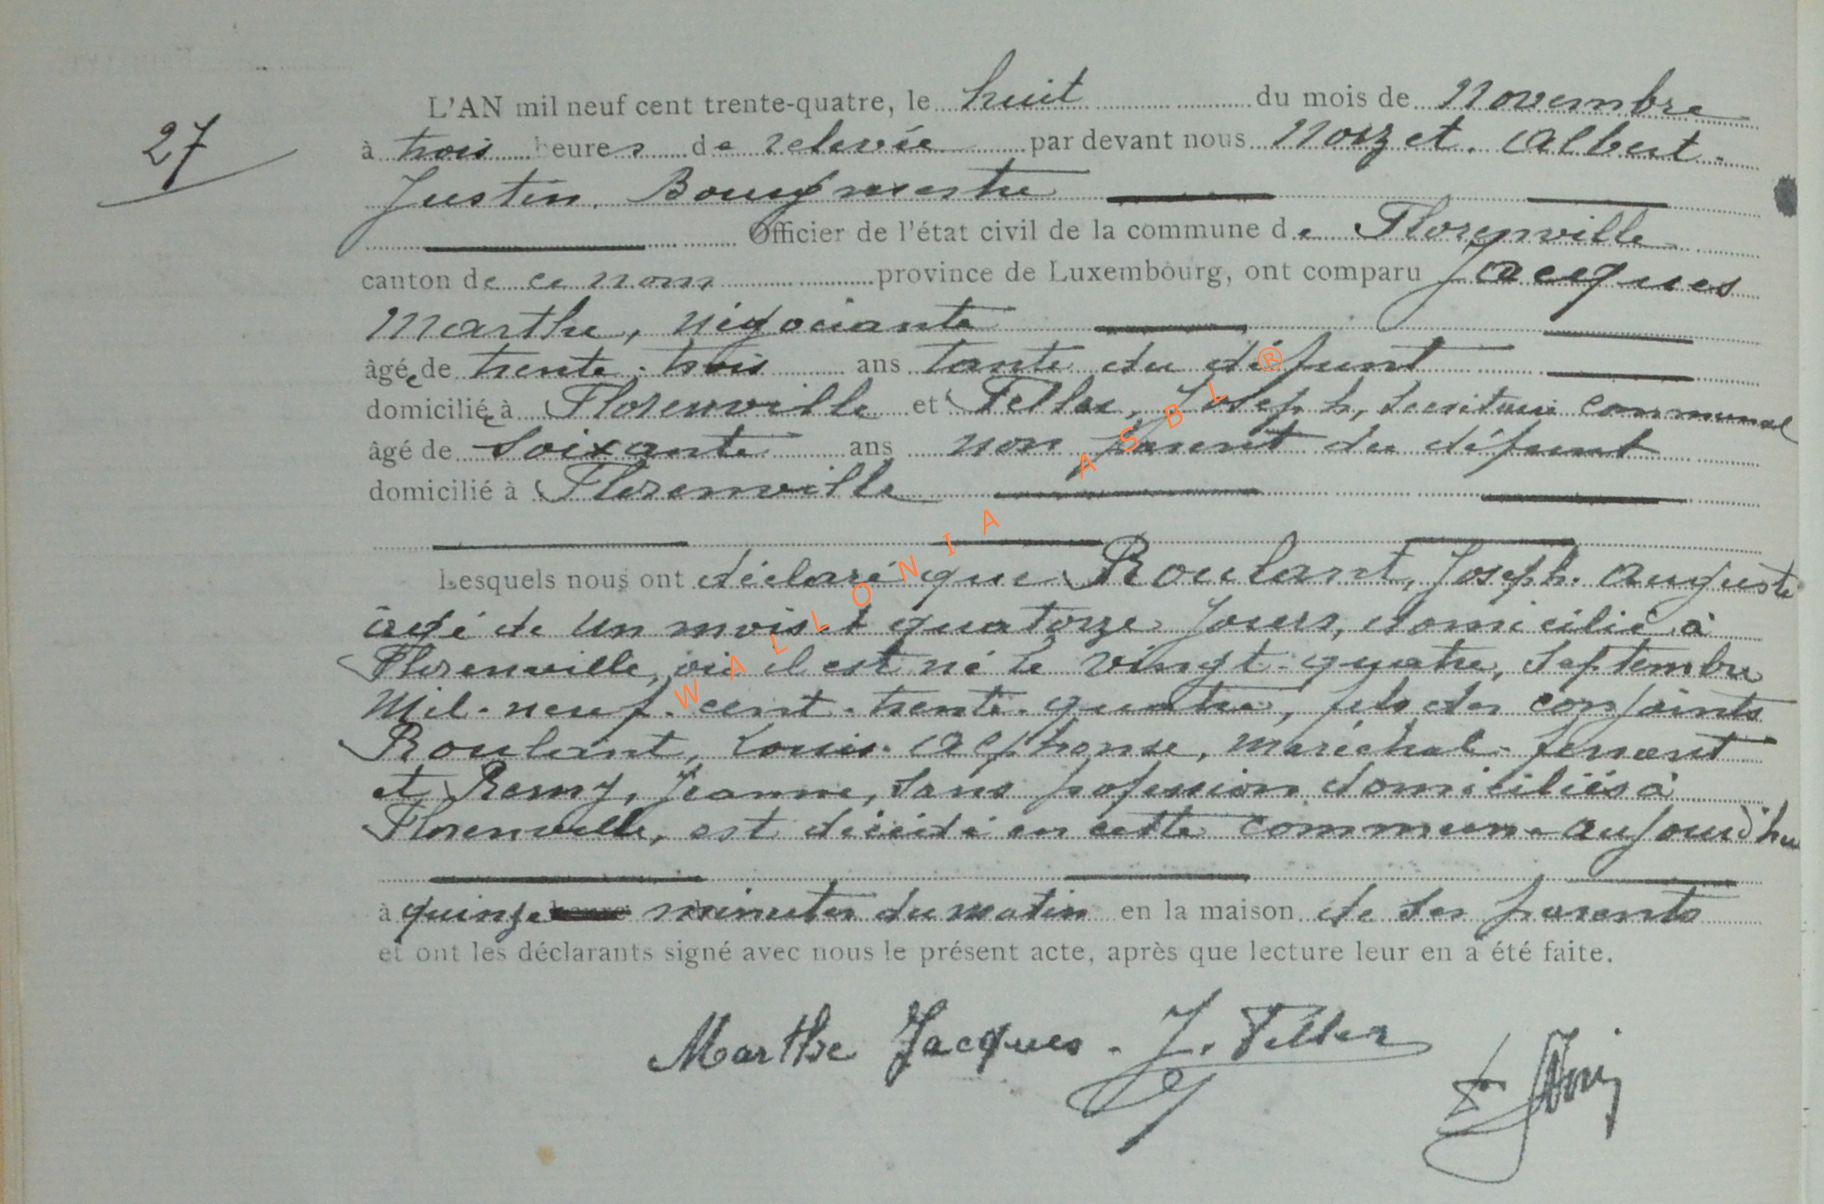 27
L'AN mil neuf cent trente-quatre, le huit du mois de Novembre
à trois heures de relevée par devant nous Noizet. Albert.
Justin. Bourgmestre
Officier de l'état civil de la commune de Florenville
canton de ce nom province de Luxembourg, ont comparu Jacques
Marthe, négociante
âgée de trente-trois ans tante du défunt
domiciliée à Florenville et Feller, Joseph, secrétaire communal
âgé de soixante ans non parent du défunt
domicilié à Florenville
Lesquels nous ont déclaré que Roulant, Joseph. Auguste
âgé de un mois et quatorze jours, domicilié à
Florenville, où il est né le vingt-quatre, septembre
mil-neuf-cent-trente-quatre, fils des conjoints
Roulant, Louis-Alphonse, maréchal-ferrant
et Remy, Jeanne, sans profession domiciliés à
Florenville, est décédé en cette commune aujourd'hui
à quinze minutes du matin en la maison de ses parents
et ont les déclarants signé avec nous le présent acte, après que lecture leur en a été faite.
Marthe Jacques. J. Feller
WALLONIA ASBL ®